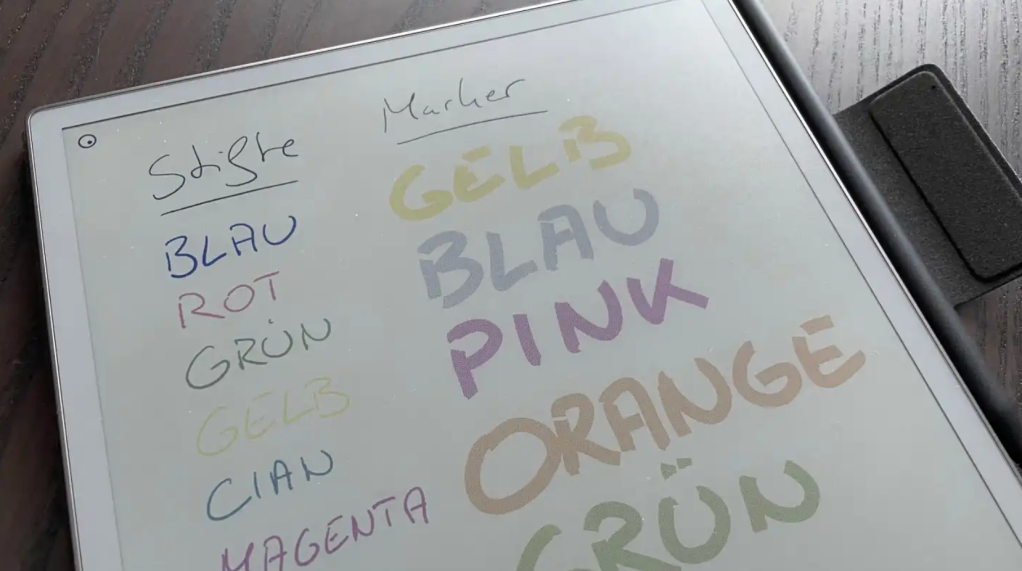 Stifte
BLAU
ROT
GRÜN
GELB
CIAN
MAGENTA
Marker
GELB
BLAU
PINK
ORANGE
GRÜN